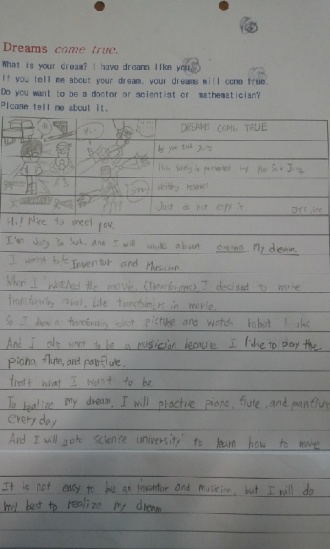 Dreams come true.
What is your dream? I have dreams like you.
If you tell me about your dream, your dreams will come true.
Do you want to be a doctor or scientist or mathematician?
Please tell me about it.
DREAMS COME TRUE
Hi! Nice to meet you.
and I will write about my dream.
I want to be Inventor and Musician
When I watched the movie, (transformers) I decided to make
transforming robot, like transformers in movie.
So I draw a transforming robot picture and watch robot
And I also want to be a musician because I like to play the
piano, flute, and panflute.
that's what I want to be.
To realize my dream, I will practice piano, flute, and panflute
every day
And I will go to science university to learn how to make
It is not easy to be an inventor and musician, but I will do
my best to realize my dream